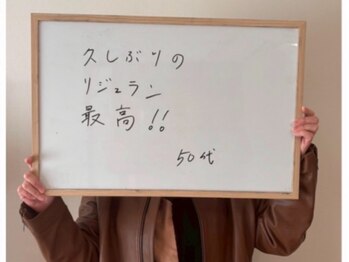 久しぶりの
リジュラン
最高!!
50代